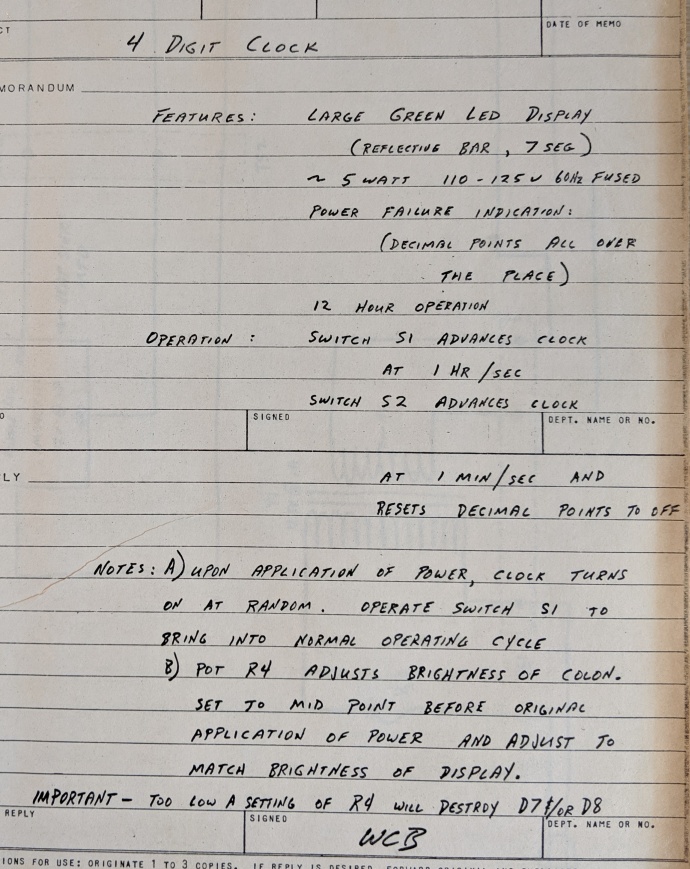 CT
DATE OF MEMO
4 DIGIT CLOCK
MORANDUM
FEATURES: LARGE GREEN LED DISPLAY
(REFLECTIVE BAR, 7 SEG)
~ 5 WATT 110-125V 60HZ FUSED
POWER FAILURE INDICATION:
(DECIMAL POINTS ALL OVER
THE PLACE)
12 HOUR OPERATION
OPERATION: SWITCH S1 ADVANCES CLOCK
AT 1 HR/SEC
SWITCH S2 ADVANCES CLOCK
O SIGNED DEPT. NAME OR NO.
LY AT 1 MIN/SEC AND
RESETS DECIMAL POINTS TO OFF
NOTES: A) UPON APPLICATION OF POWER, CLOCK TURNS
ON AT RANDOM. OPERATE SWITCH S1 TO
BRING INTO NORMAL OPERATING CYCLE
B) POT R4 ADJUSTS BRIGHTNESS OF COLON.
SET TO MID POINT BEFORE ORIGINAL
APPLICATION OF POWER AND ADJUST TO
MATCH BRIGHTNESS OF DISPLAY.
IMPORTANT - TOO LOW A SETTING OF R4 WILL DESTROY D7 &/OR D8
REPLY SIGNED DEPT. NAME OR NO.
WCB
IONS FOR USE: ORIGINATE 1 TO 3 COPIES. IF REPLY IS DESIRED, FORWARD ORIGINAL AND